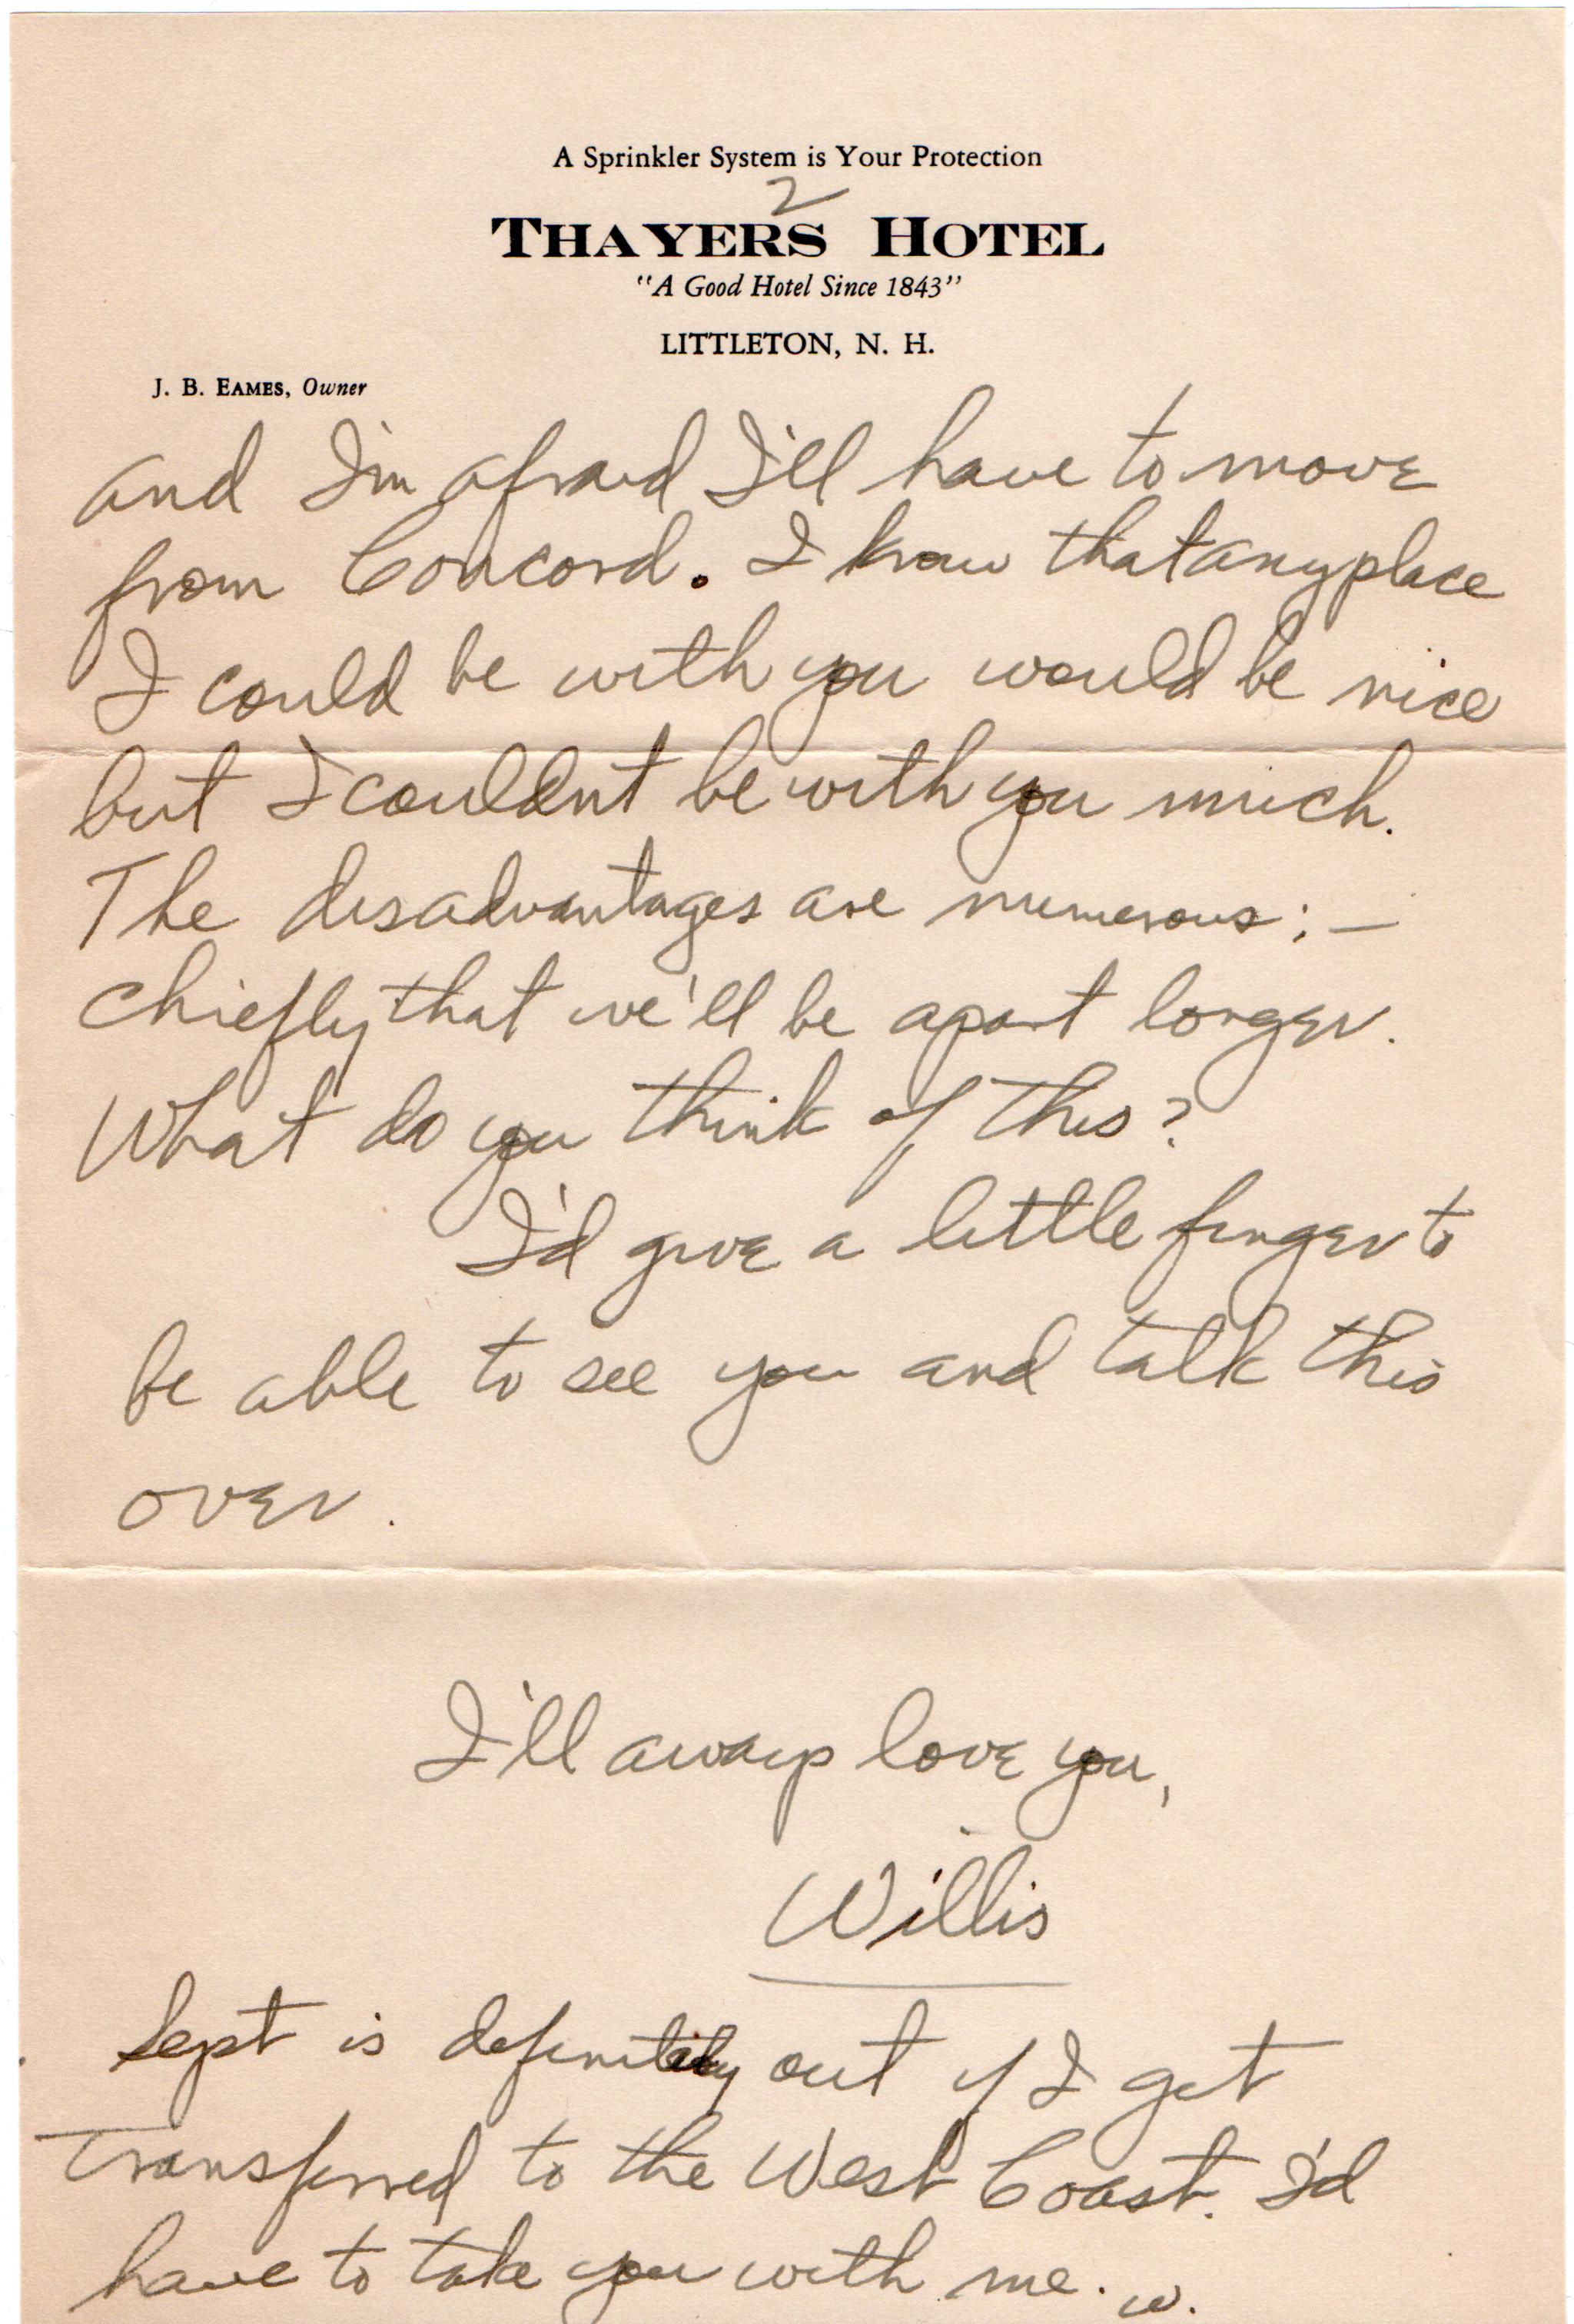 A Sprinkler System is Your Protection
2
THAYERS HOTEL
"A Good Hotel Since 1843"
LITTLETON, N. H.
J. B. EAMES, Owner
and I'm afraid I'll have to move
from Concord. I know that any place
I could be with you would be nice
but I couldnt be with you much.
The disadvantages are numerous; —
chiefly that we'll be apart longer.
What do you think of this?
I'd give a little finger to
be able to see you and talk this
over.
I'll aways love you,
Willis
Sept is definitely out if I get
transferred to the West Coast. I'd
have to take you with me. W.